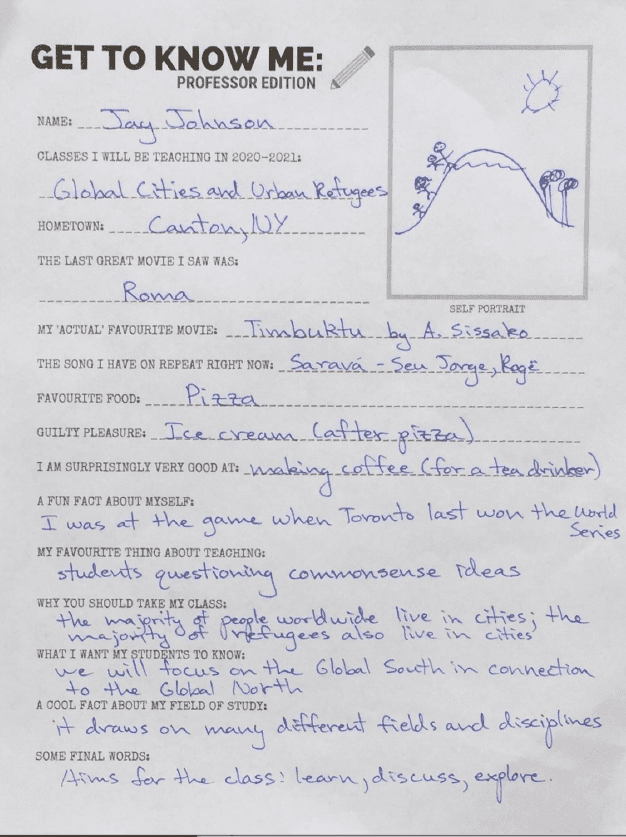 GET TO KNOW ME:
PROFESSOR EDITION
NAME: Jay Johnson
CLASSES I WILL BE TEACHING IN 2020-2021:
Global Cities and Urban Refugees
HOMETOWN: Canton, NY
THE LAST GREAT MOVIE I SAW WAS:
Roma
SELF PORTRAIT
MY 'ACTUAL' FAVOURITE MOVIE: Timbuktu by A. Sissako
THE SONG I HAVE ON REPEAT RIGHT NOW: Saravá - Seu Jorge, Rogê
FAVOURITE FOOD: Pizza
GUILTY PLEASURE: Ice cream (after pizza)
I AM SURPRISINGLY VERY GOOD AT: making coffee (for a tea drinker)
A FUN FACT ABOUT MYSELF:
I was at the game when Toronto last won the World
Series
MY FAVOURITE THING ABOUT TEACHING:
students questioning commonsense ideas
WHY YOU SHOULD TAKE MY CLASS:
the majority of people worldwide live in cities; the
majority of refugees also live in cities
WHAT I WANT MY STUDENTS TO KNOW:
we will focus on the Global South in connection
to the Global North
A COOL FACT ABOUT MY FIELD OF STUDY:
it draws on many different fields and disciplines
SOME FINAL WORDS:
Aims for the class: learn, discuss, explore.